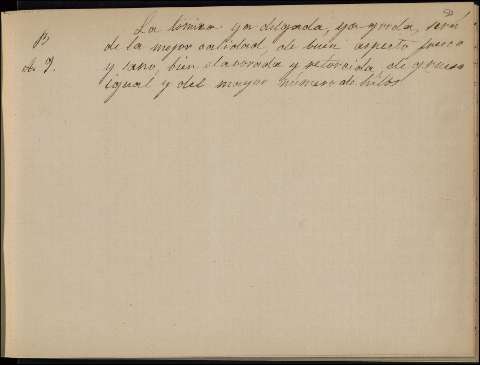 B
A. J.
La tomiza ya delgada, ya gorda, será
de la mejor calidad, de buen aspecto fresco
y sano, bien elaborada y retorcida, de grueso
igual y del mayor número de hilos